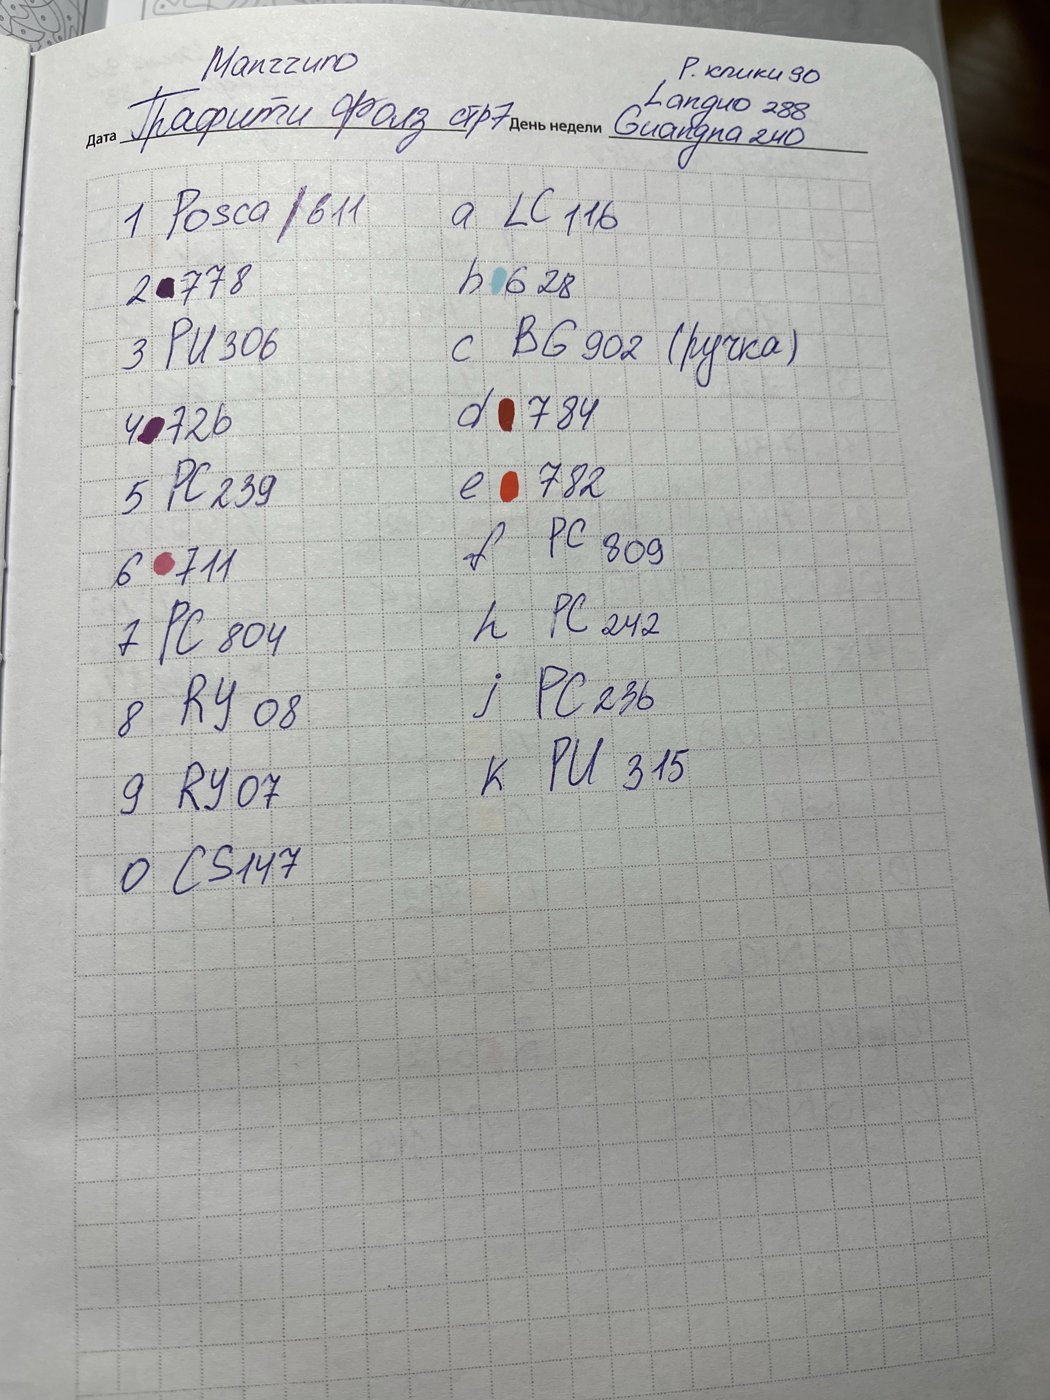 Manzzuno
Р. клики 90
Languo 288
Дата Графити Фолз стр7 День недели Guangna 240
1 Posca / 611
a LC 116
2 778
b 628
3 PU 306
c BG 902 (ручка)
4 726
d 784
5 PC 239
e 782
6 711
f PC 809
7 PC 804
h PC 242
8 RY 08
j PC 236
9 RY 07
k PU 315
0 CS147